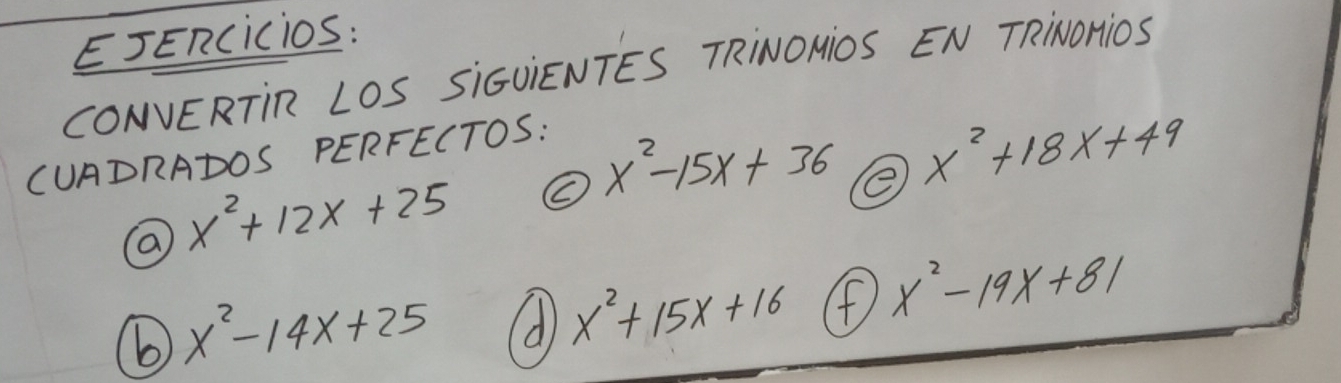 EJERCICIOS:
CONVERTIR LOS SIGUIENTES TRINOMIOS EN TRINOMIOS
CUADRADOS PERFECTOS:
ⓐ x²+12x+25 ⓒ x²-15x+36 ⓔ x²+18x+49
ⓑ x²-14x+25 ⓓ x²+15x+16 ⓕ x²-19x+81